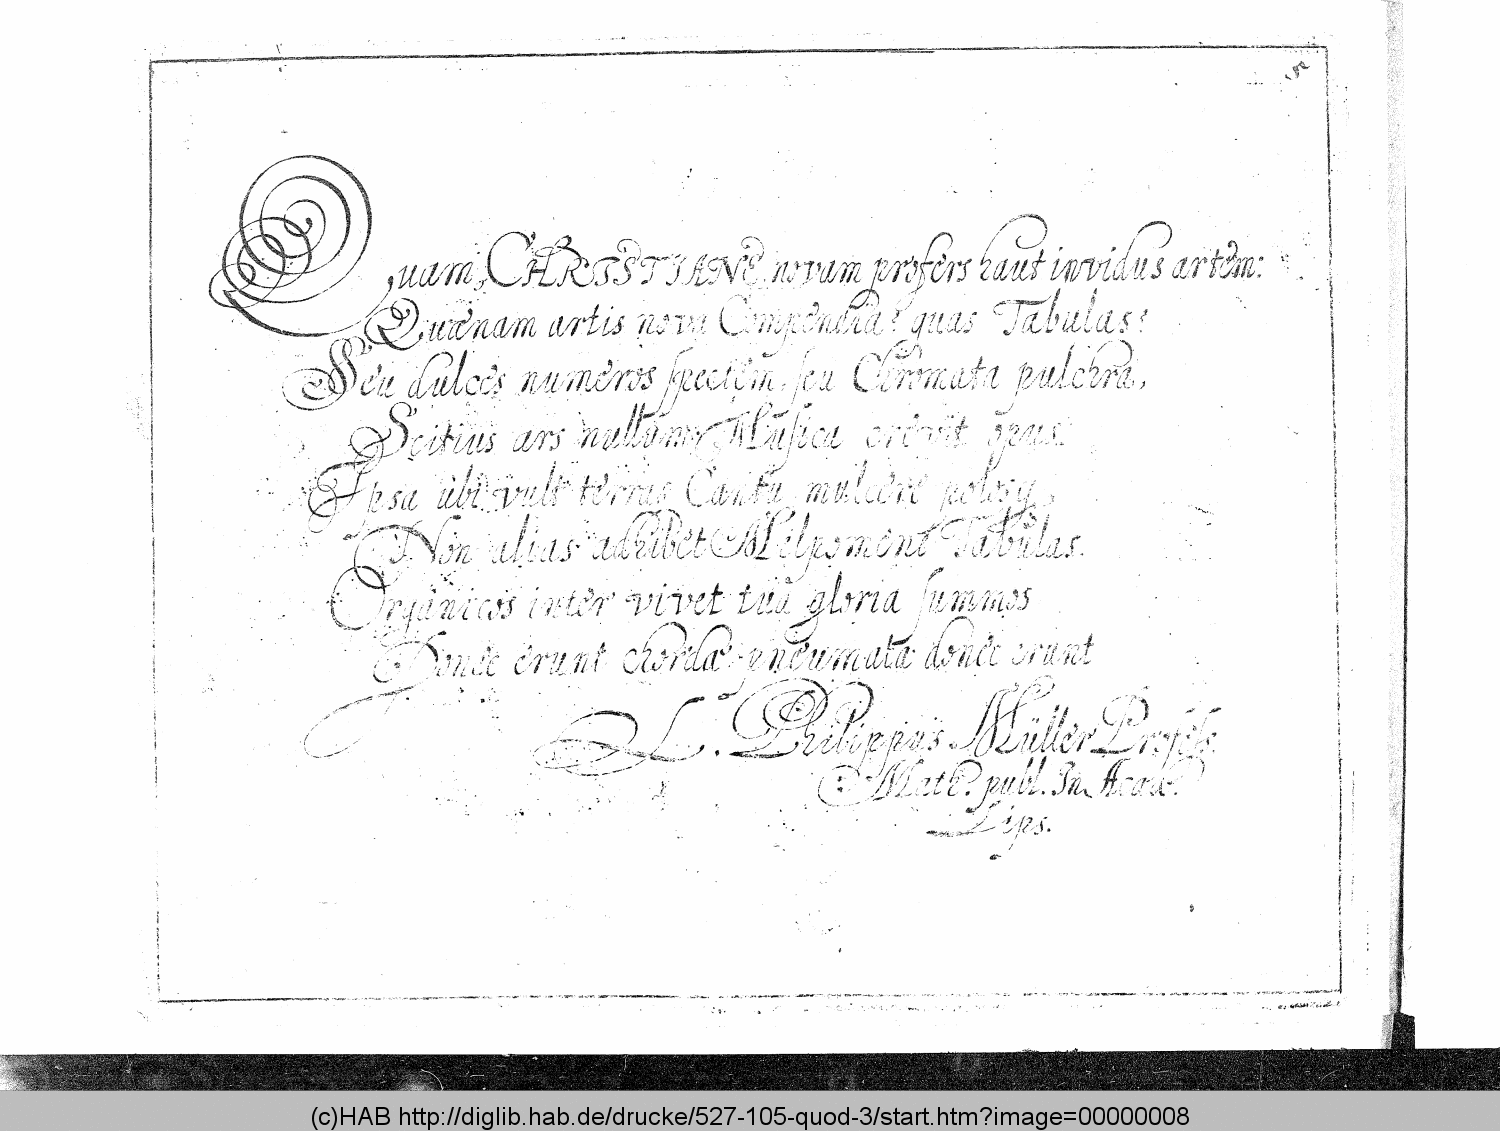 Quam, CHRISTIANE, novam profers haut invidus artem:
Quænam artis nova Compendia? quas Tabulas?
Seu dulces numeros spectem, seu Chromata pulchra,
Scitius ars nullum Musica crevit opus.
Ipsa ubi vult terras Cantu mulcere polosq,
Non alias adhibet Melpomene Tabulas.
Organicos inter vivet tua gloria summos
Donec erunt chordæ pneumata donec erunt
L. Philippus Müller Profess.
Math. publ. In Acad.
Lips.
(c)HAB http://diglib.hab.de/drucke/527-105-quod-3/start.htm?image=00000008